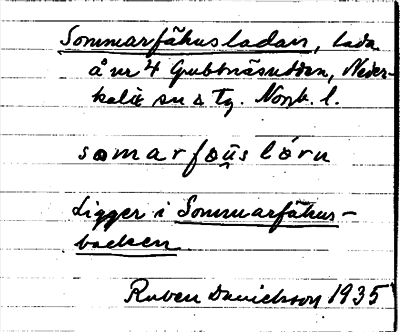 Sommarfähusladan, lada
å nr 4 Grubbnäsudden, Neder-
kalix sn o tg. Norrb. l.
somarfəüs lórn
Ligger i Sommarfähus-
backen
Ruben Danielsson 1935